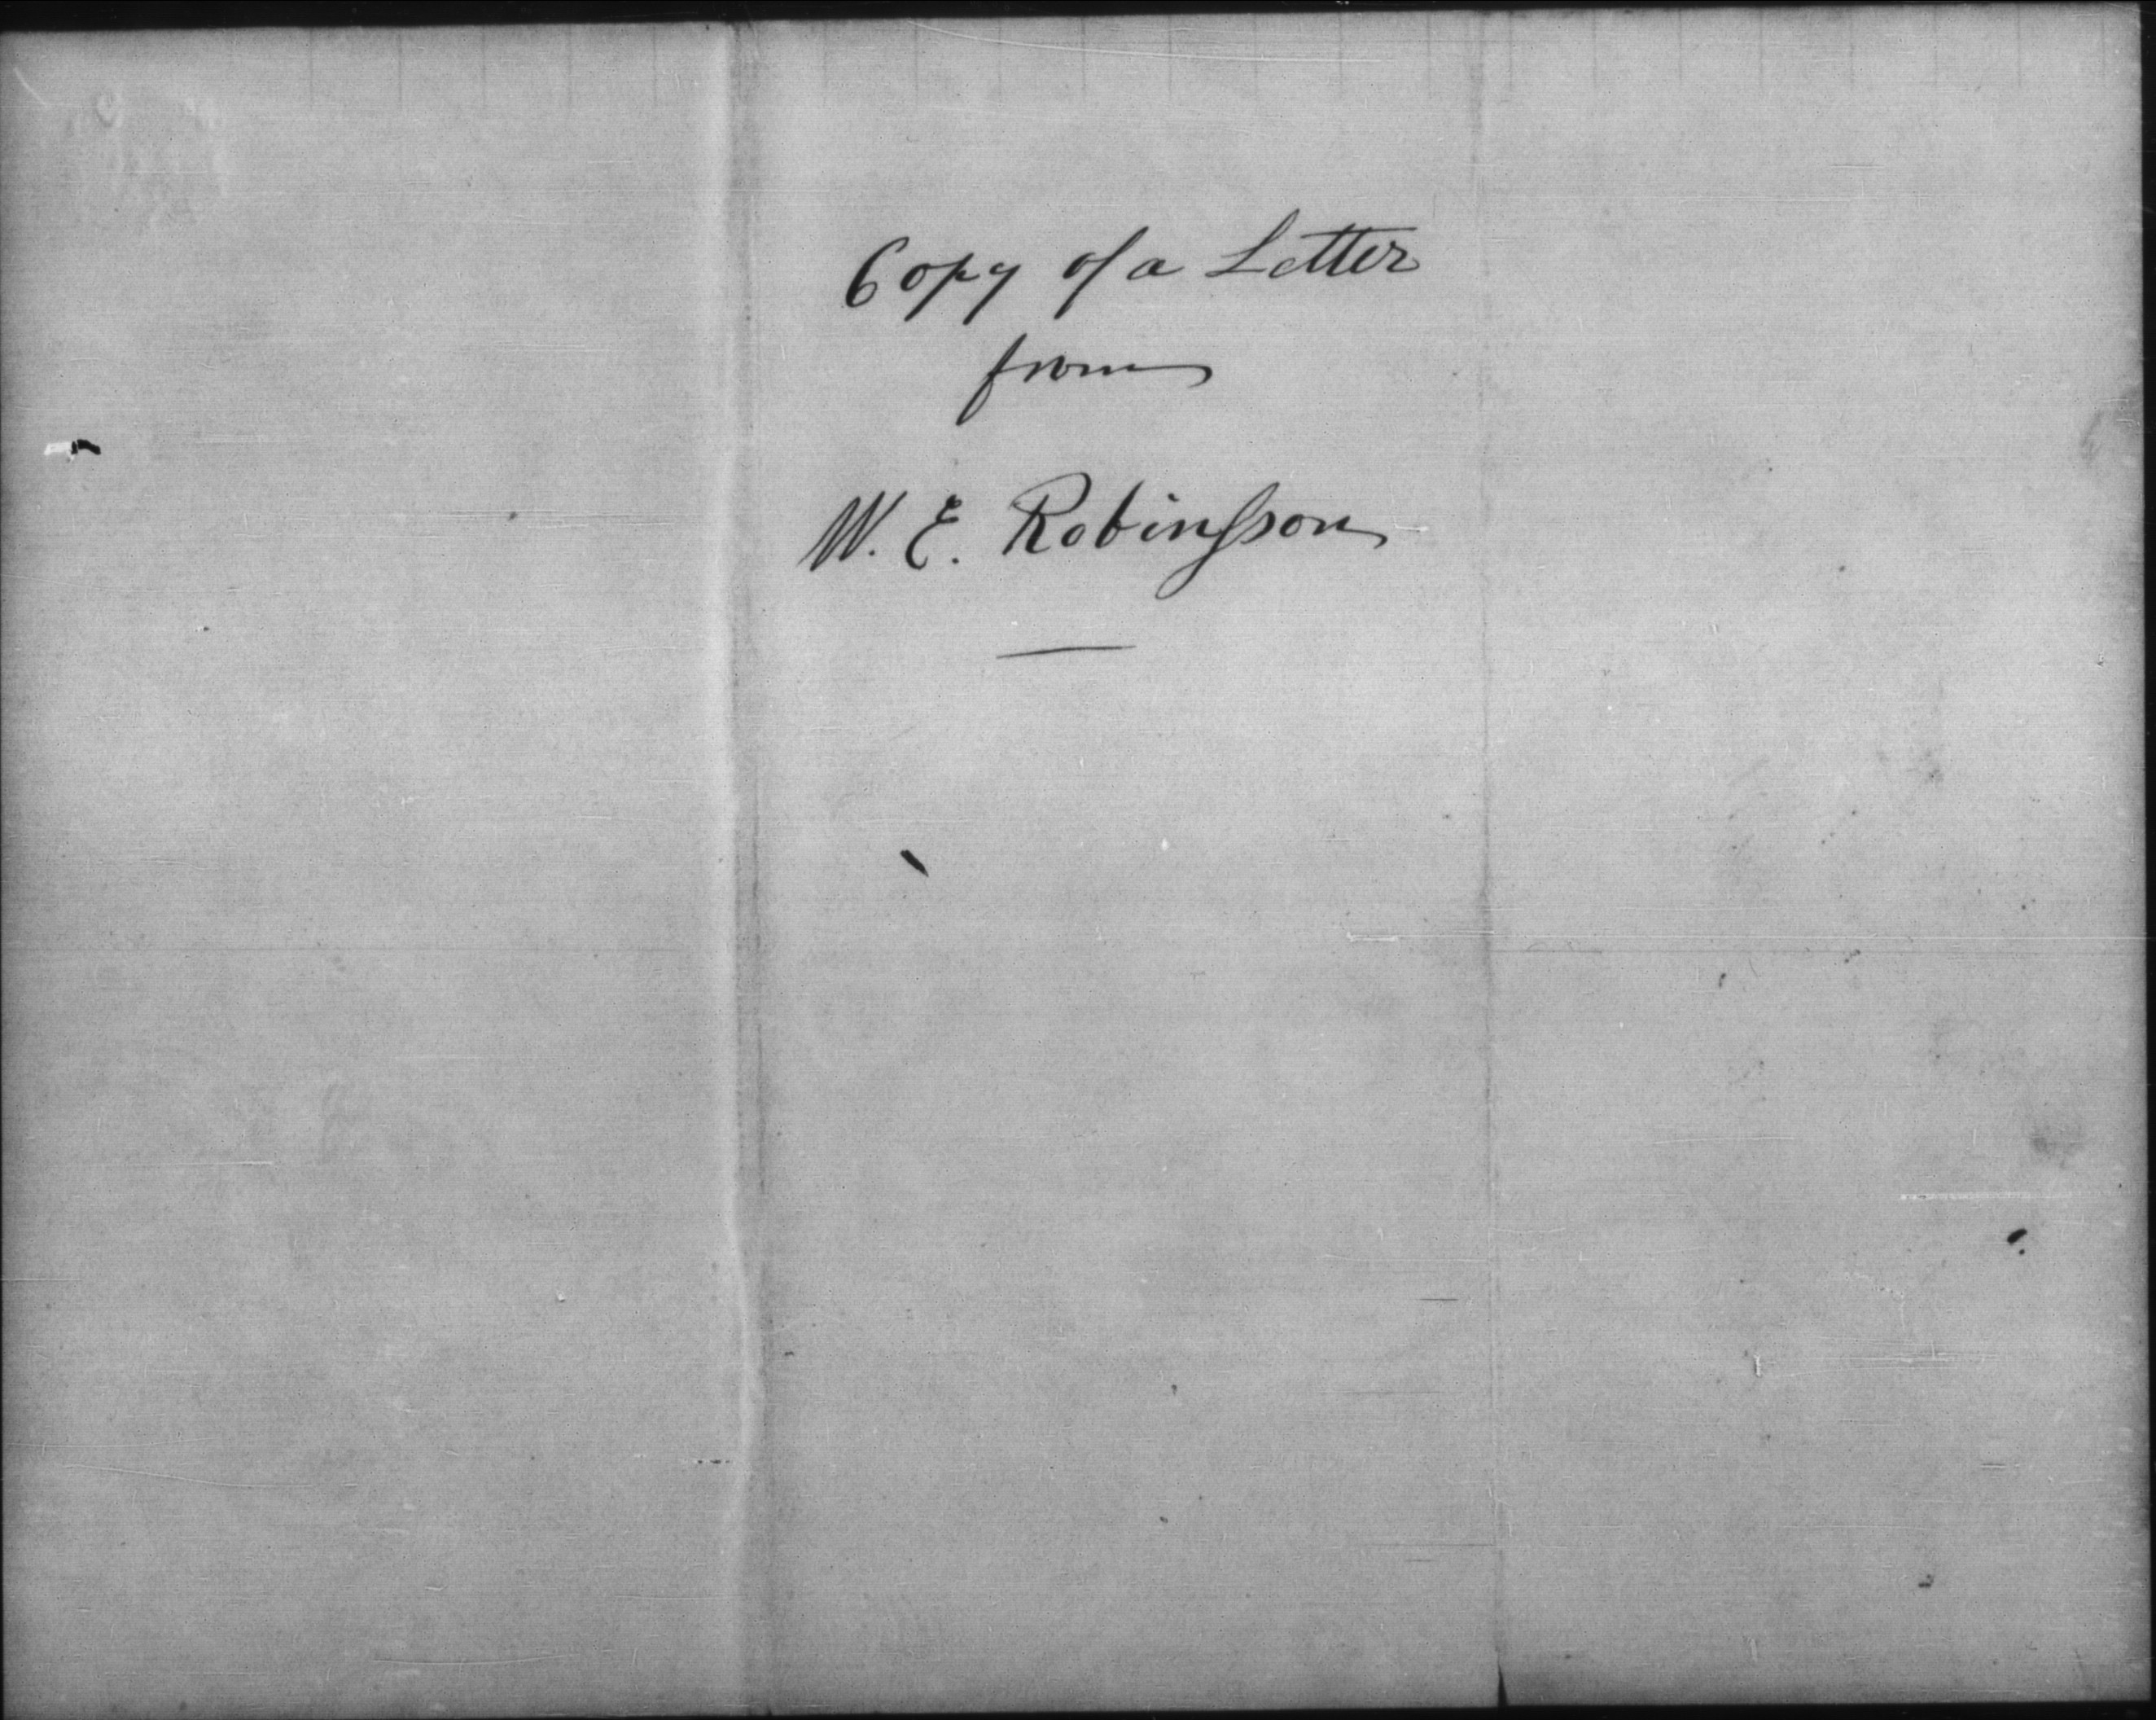 Copy of a Letter
from
W. E. Robinsson